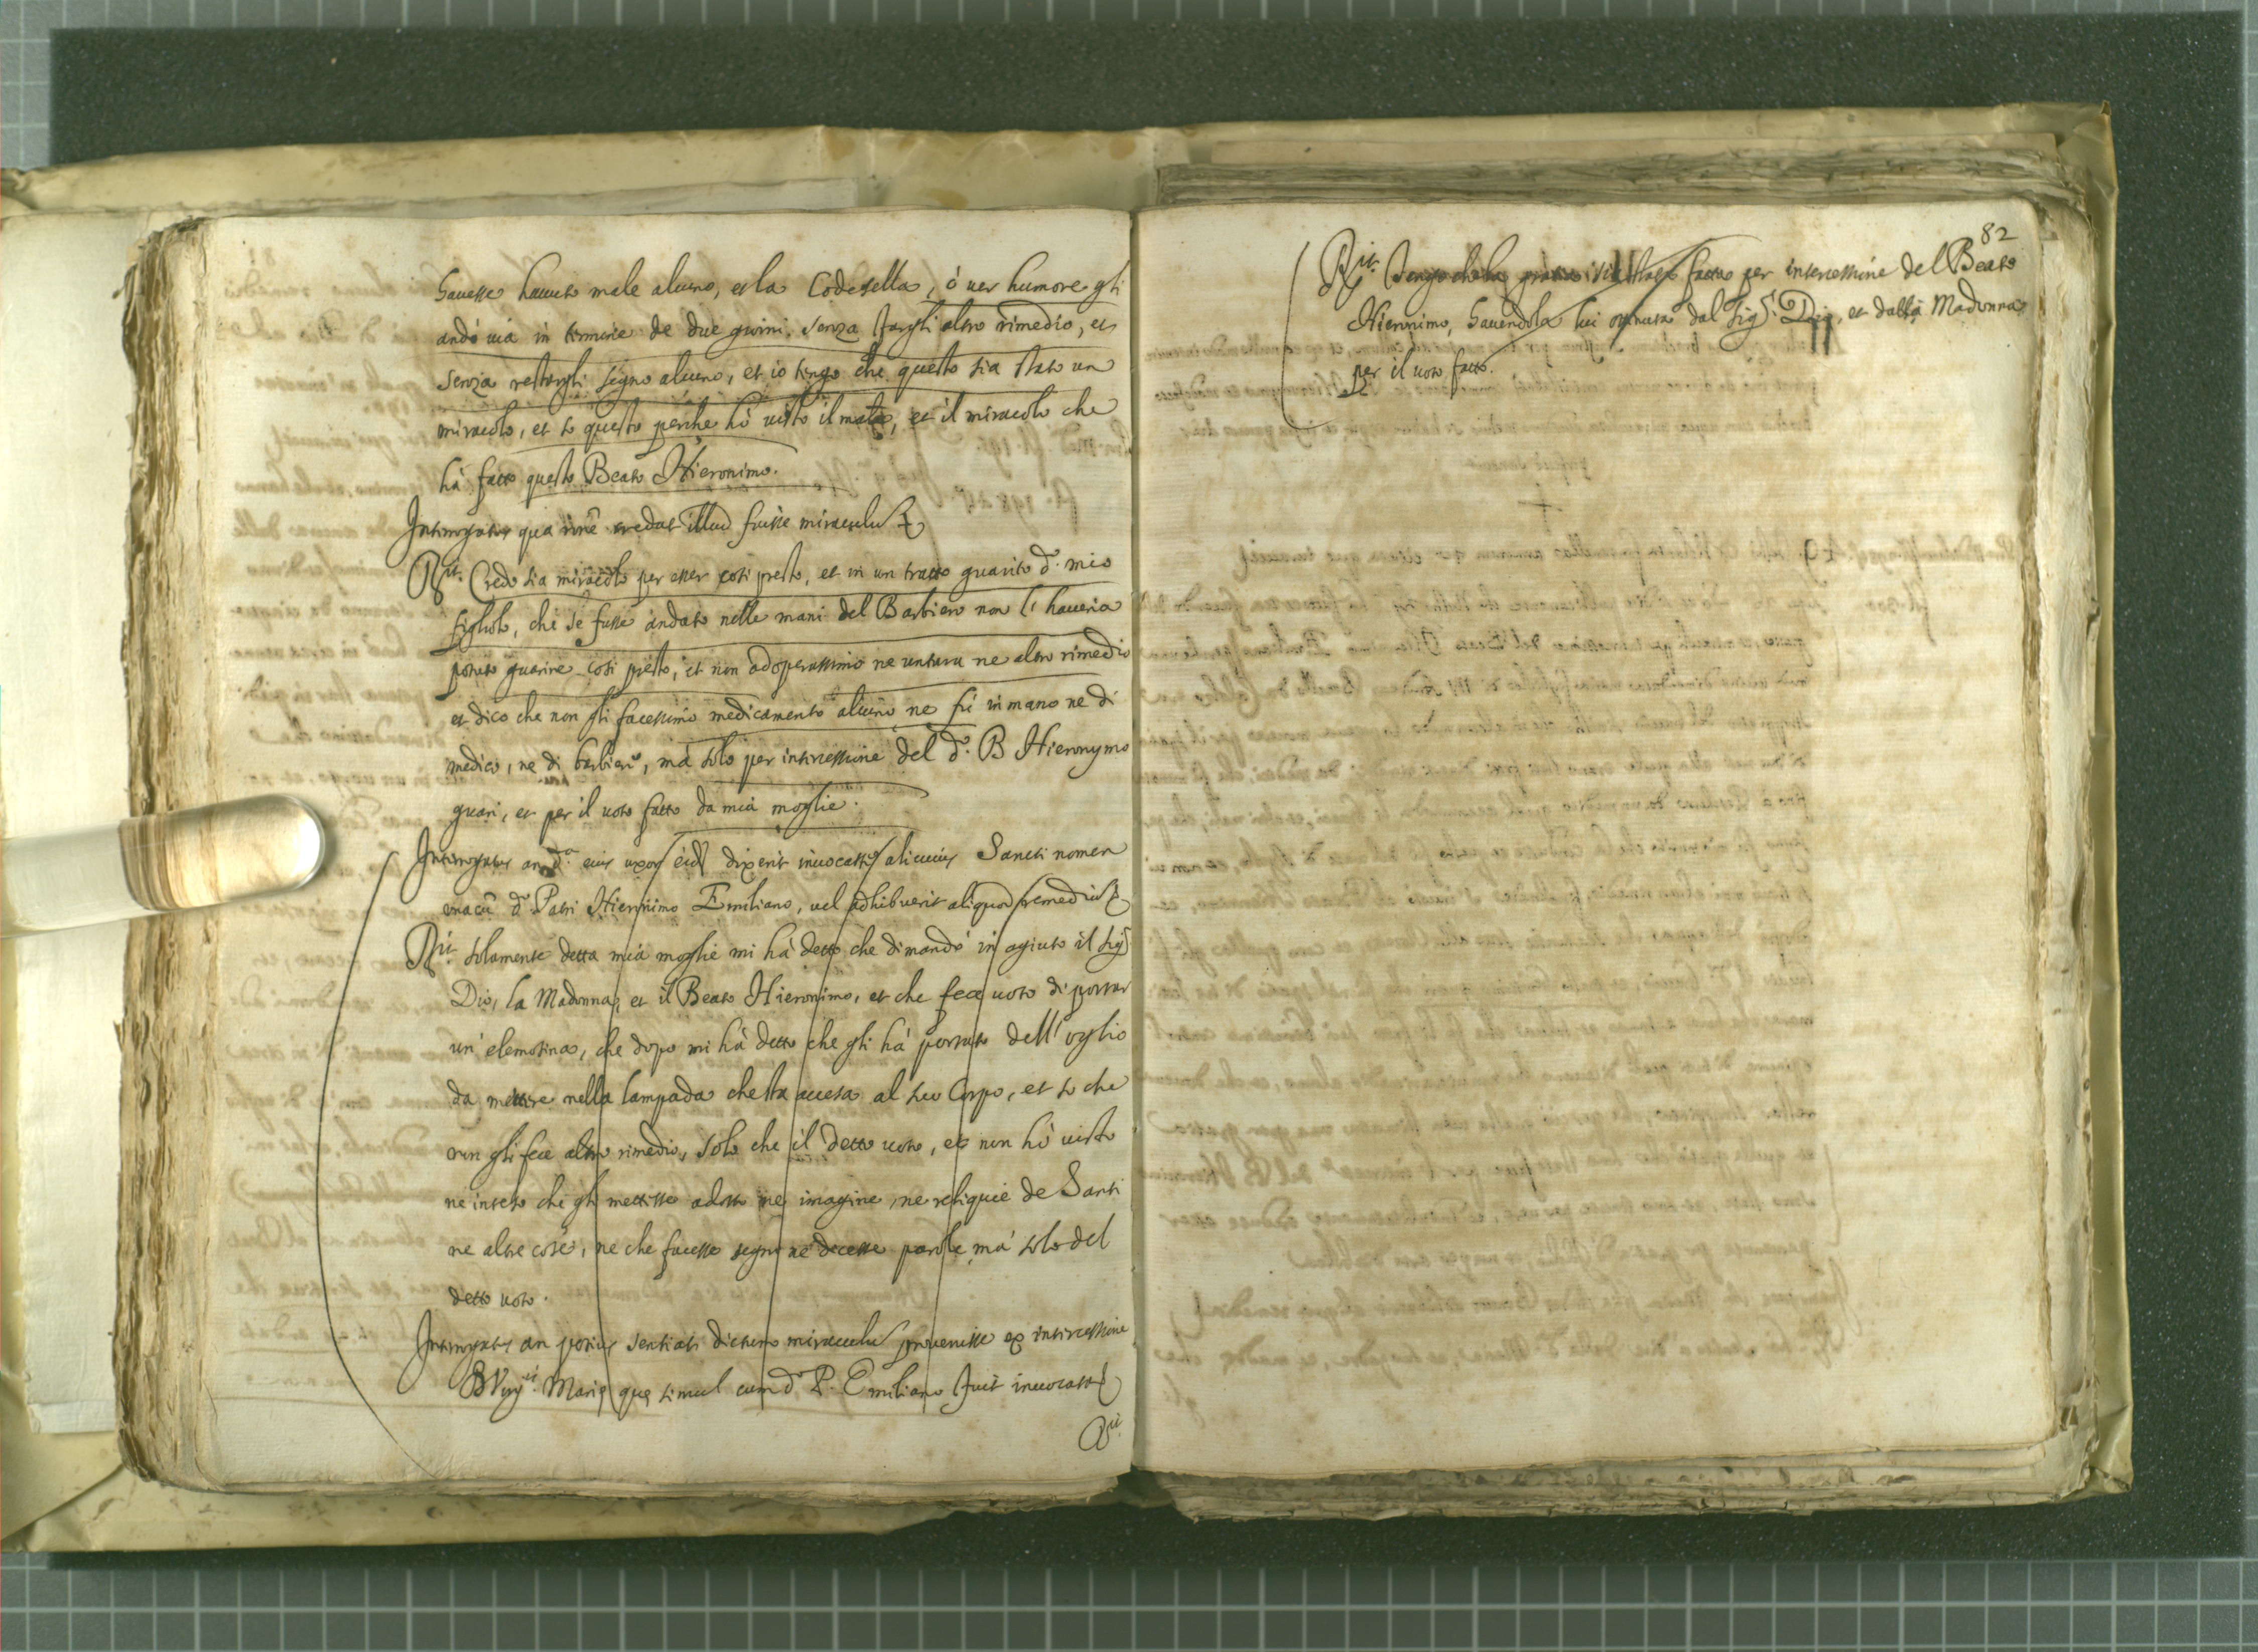 havesse havuto male alcuno, et la Codesella, ò ver humore gli
andò via in termine de due giorni senza fargli altro rimedio, et
senza restargli segno alcuno, et io tengo che questo sia stato un
miracolo, et so questo perche hò visto il male, et il miracolo che
hà fatto questo Beato Hieronimo.
Interrogatus qua rōne credat illud fuisse miraculu
Rit. Credo sia miracolo per esser cosi presto, et in un tratto guarito do. mio
figliolo, che se fusse andato nelle mani del Barbiero non l' haveria
potuto guarire cosi presto, et non adoperassimo ne untura ne altro rimedio
et dico che non gli facessimo medicamento alcuno ne fu in mano ne di
medico, ne di barbiero, mà solo per intercessione del do. B Hieronymo
guari, et per il voto fatto da mia moglie.
Interrogatus an da. eius uxor eid dixerit invocasse alicuius Sancti nomen
una cū do. Patri Hieronimo Emiliano, vel adhibuerit aliquod remediu
Rit. solamente detta mia moglie mi hà detto che dimandò in agiuto il sigr
Dio, la Madonna, et il Beato Hieronimo, et che fece voto di portar
un' elemosina, che dopo mi hà detto che gli hà portato dell' oglio
da mettere nella lampada che sta accesa al suo Corpo, et so che
non gli fece altro rimedio, solo che il detto voto, et non hò visto
ne inteso che gli mettesse adosso ne imagine, ne reliquie de Santi
ne altre cose, ne che facesse segni ne dicesse parole, mà solo del
detto voto.
Interrogatus an potius sentiat dictum miraculu provenisse ex intercessione
B Virgis. Marię quę simul cum do P. Emiliano fuit invocata
Rit.
82
Rit. Tengo che la gratia sia stata fatta per intercessione del Beato
Hieronimo, havendola lui ottenuta dal sigr. Dio, et dalla Madonna
per il voto fatto.